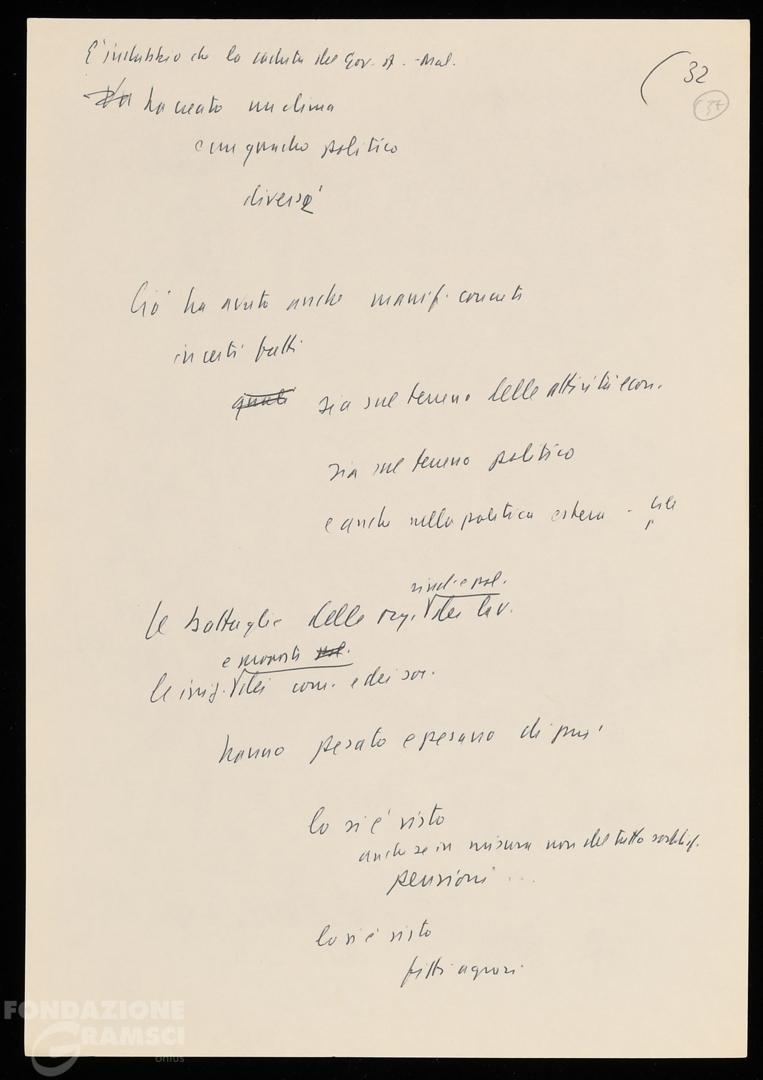 E' indubbio che la caduta del Gov. A.-Mal.
(32
(37)
Ha ha creato un clima
e un quadro politico
diverso
Ciò ha avuto anche manif. concreti
in certi fatti
quali sia sul terreno delle attività econ.
sia sul terreno politico
e anche nella politica estera - Cile
sind. e pol.
le battaglie delle org. dei lav.
e proposte pol.
le iniz. dei com. e dei soc.
hanno pesato e pesano di più
lo si è visto
anche se in misura non del tutto soddisf.
pensioni ...
lo si è visto
fitti agrari
FONDAZIONE
GRAMSCI
onlus